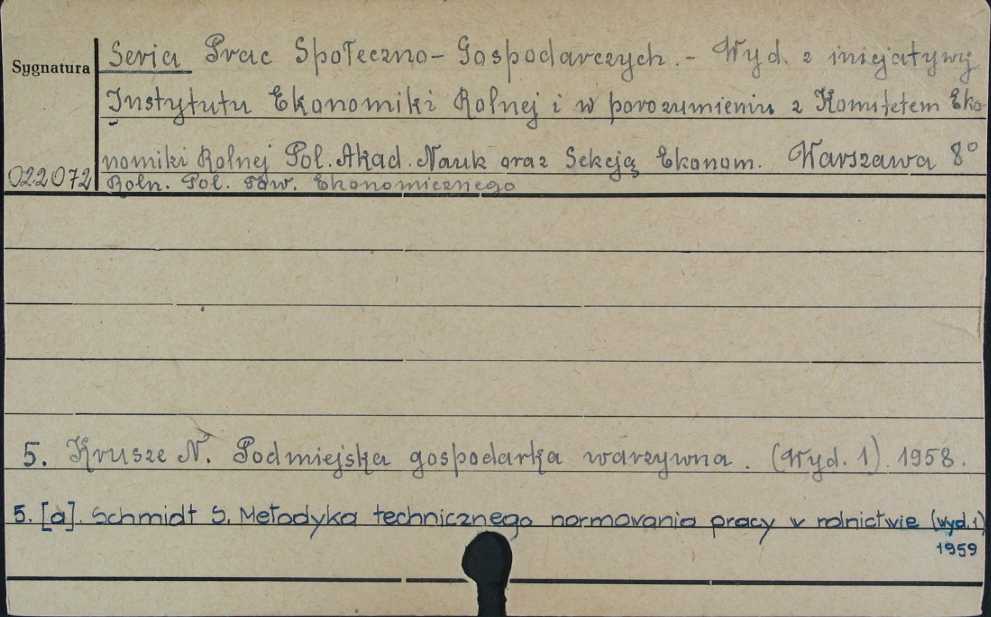 Sygnatura
Seria Prac Społeczno-Gospodarczych. - Wyd. z inicjatywy
Instytutu Ekonomiki Rolnej i w porozumieniu z Komitetem Eko-
nomiki Rolnej Pol. Akad. Nauk oraz Sekcją Ekonom. Warszawa 8°
022072 Roln. Pol. Tow. Ekonomicznego
5. Krusze N. Podmiejska gospodarka warzywna. (Wyd. 1). 1958.
5. [a]. Schmidt S. Metodyka technicznego normowania pracy w rolnictwie (wyd. 1)
1959